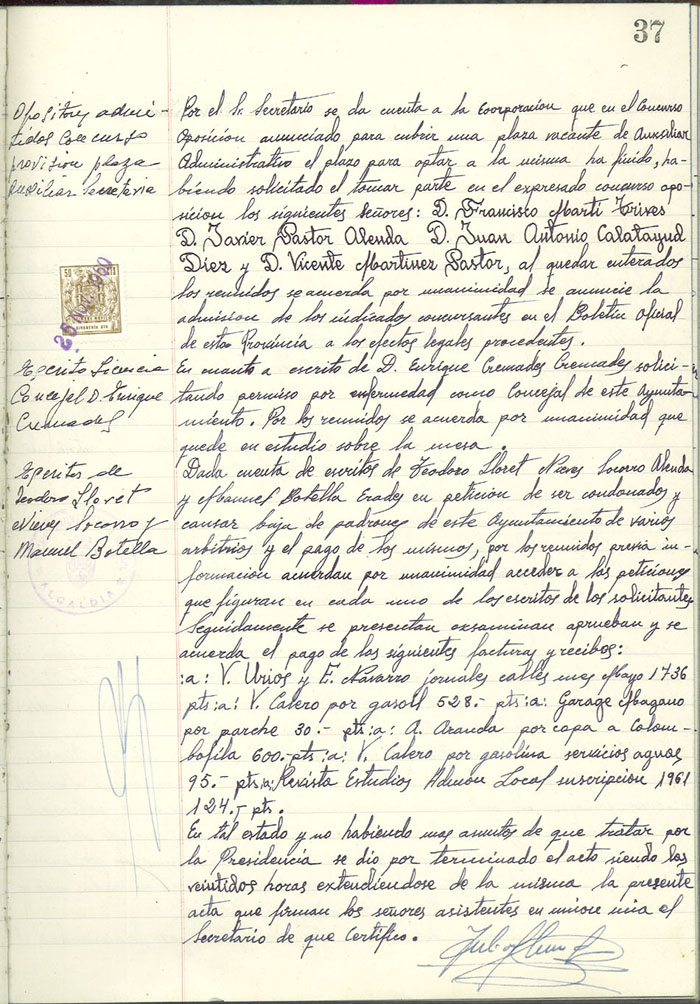 37
Opositores admi-
tidos concurso
provision plaza
Auxiliar Secretaria
Por el Sr. Secretario se da cuenta a la Coorporacion que en el Concurso
Oposicion anunciado para cubrir una plaza vacante de Auxiliar
Administrativo el plazo para optar a la misma ha finido, ha-
biendo solicitado el tomar parte en el expresado concurso opo-
sicion los siguientes Señores: D. Francisco Marti Trives
D. Javier Pastor Alenda D. Juan Antonio Calatayud
Diez y D. Vicente Martinez Pastor, al quedar enterados
los reunidos se acuerda por unanimidad se anuncie la
admision de los indicados concursantes en el Boletin Oficial
de esta Provincia a los efectos legales procedentes.
50
25 1960
Escrito Licencia
Concejal D. Enrique
Cremades
En cuanto a escrito de D. Enrique Cremades Cremades solici-
tando permiso por enfermedad como Concejal de este Ayunta-
miento. Por los reunidos se acuerda por unanimidad que
quede en estudio sobre la mesa.
Escritos de
Teodoro Lloret
Nieves Socorro y
Manuel Botella
ALCALDIA
Dada cuenta de escritos de Teodoro Lloret Nieves Socorro Alenda
y Manuel Botella Erades en peticion de ser condonados y
causar baja de padrones de este Ayuntamiento de varios
arbitrios y el pago de los mismos, por los reunidos previa in-
formacion acuerdan por unanimidad acceder a las peticiones
que figuran en cada uno de los escritos de los solicitantes
Seguidamente se presentan exsaminan aprueban y se
acuerda el pago de las siguientes facturas y recibos:
:a: V. Urios y E. Navarro jornales calles mes Mayo 1736
pts :a: V. Calero por gasoil 528.- pts :a: Garage Magano
por parche 30.- pts :a: A. Aranda por copa a Colom-
bofila 600.- pts :a: V. Calero por gasolina servicios aguas
95.- pts :a: Revista Estudios Admon Local suscripcion 1961
124.- pts.
En tal estado y no habiendo mas asuntos de que tratar por
la Presidencia se dio por terminado el acto siendo las
veintidos horas extendiendose de la misma la presente
acta que firman los señores asistentes en union mia el
Secretario de que Certifico.